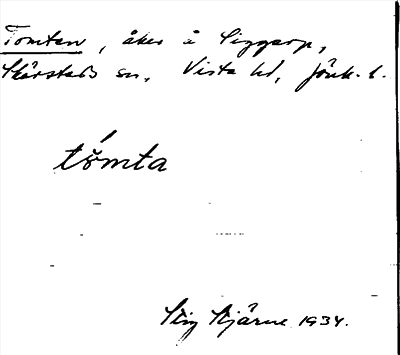 Tomten, åker å Siggarp,
Skärstads sn, Vista hd, Jönk. l.
tŏ́mta
Stig Stjärne 1934.